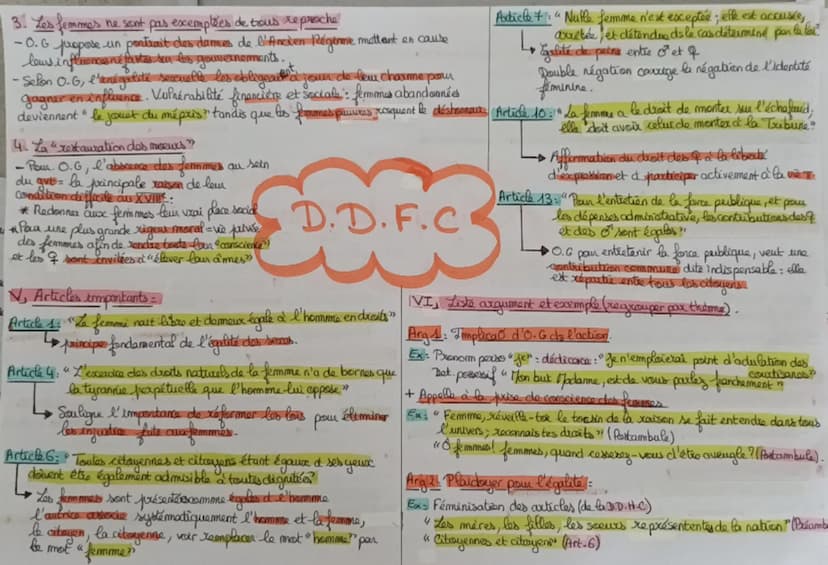 3. Les femmes ne sont pas exemptées de tous reproche
- O.G propose un portrait des dames de l'Ancien Régime mettant en cause
leurs influences néfastes sur les gouvernements.
- Selon O.G, l'inégalité sexuelle les obligeaient à jouer de leur charme pour
gagner en influence. Vulnérabilité financière et sociale : femmes abandonnées
deviennent "le jouet du mépris" tandis que les femmes pauvres risquent le déshonneur
4. La "restauration des moeurs"
- Pour O.G, l'absence des femmes au sein
du gvt = la principale raison de leur
condition difficile au XVIII :
* Redonner aux femmes leur vrai place social
* Pour une plus grande rigueur moral = vie privée
des femmes afin de rendre toute leur "conscience"
et les ♀ sont invitées d'"élever leur âmes"
D.D.F.C
V, Articles importants :
Article 1 : "La femme nait libre et demeure égale à l'homme en droits"
→ principe fondamental de l'égalité des sexes.
Article 4 : "L'exercice des droits naturels de la femme n'a de bornes que
la tyrannie perpétuelle que l'homme lui oppose"
→ Souligne l'importance de réformer les lois pour éliminer
les injustice faite aux femmes.
Article 6 : "Toutes citoyennes et citoyens étant égaux à ses yeux
doivent être également admisible à toutes dignités"
→ Les femmes sont présentés comme égales à l'homme
l'autrice associe systématiquement l'homme et la femme,
le citoyen, la citoyenne, voir remplacer le mot "homme" par
le mot "femme"
Article 7 : "Nulle femme n'est exceptée ; elle est accusée,
arrêtée et détenue ds le cas déterminé par la loi"
→ Egalité de peine entre ♂ et ♀
Double négation corrige la négation de l'identité
féminine.
Article 10 : "La femme a le droit de monter sur l'échafaud ;
elle doit avoir celui de monter à la Tribune"
→ Affirmation du droit des ♀ à la liberté
d'expression et à participer activement à la vie
Article 13 : "Pour l'entretien de la force publique, et pour
les dépenses administrative, les contributions des ♀
et des ♂ sont égales"
→ O.G pour entretenir la force publique, veut une
contribution commune dite indispensable : elle
est répartie entre tous les citoyens
VI, Liste argument et exemple (regrouper par thème).
Arg 1 : Implicat° d'O.G ds l'action.
Ex : Pronom perso "je" : dédicace : "Je n'emploierai point d'adulation des courtisans"
Det possessif "Mon but Madame, est de vous parlez franchement"
+ Appelle à la prise de conscience des femmes
Ex : "Femme, réveille-toi ; le tocsin de la raison se fait entendre dans tous
l'univers ; reconnais tes droits" (Postambule)
"Ô femmes ! femmes, quand cesserez-vous d'être aveugle ? (Postambule).
Arg 2 : Plaidoyer pour l'égalité :
Ex : Féminisation des articles (de la D.D.H.C)
"Les mères, les filles, les soeurs représententes de la nation"
"Citoyennes et citoyens" (Art.6)